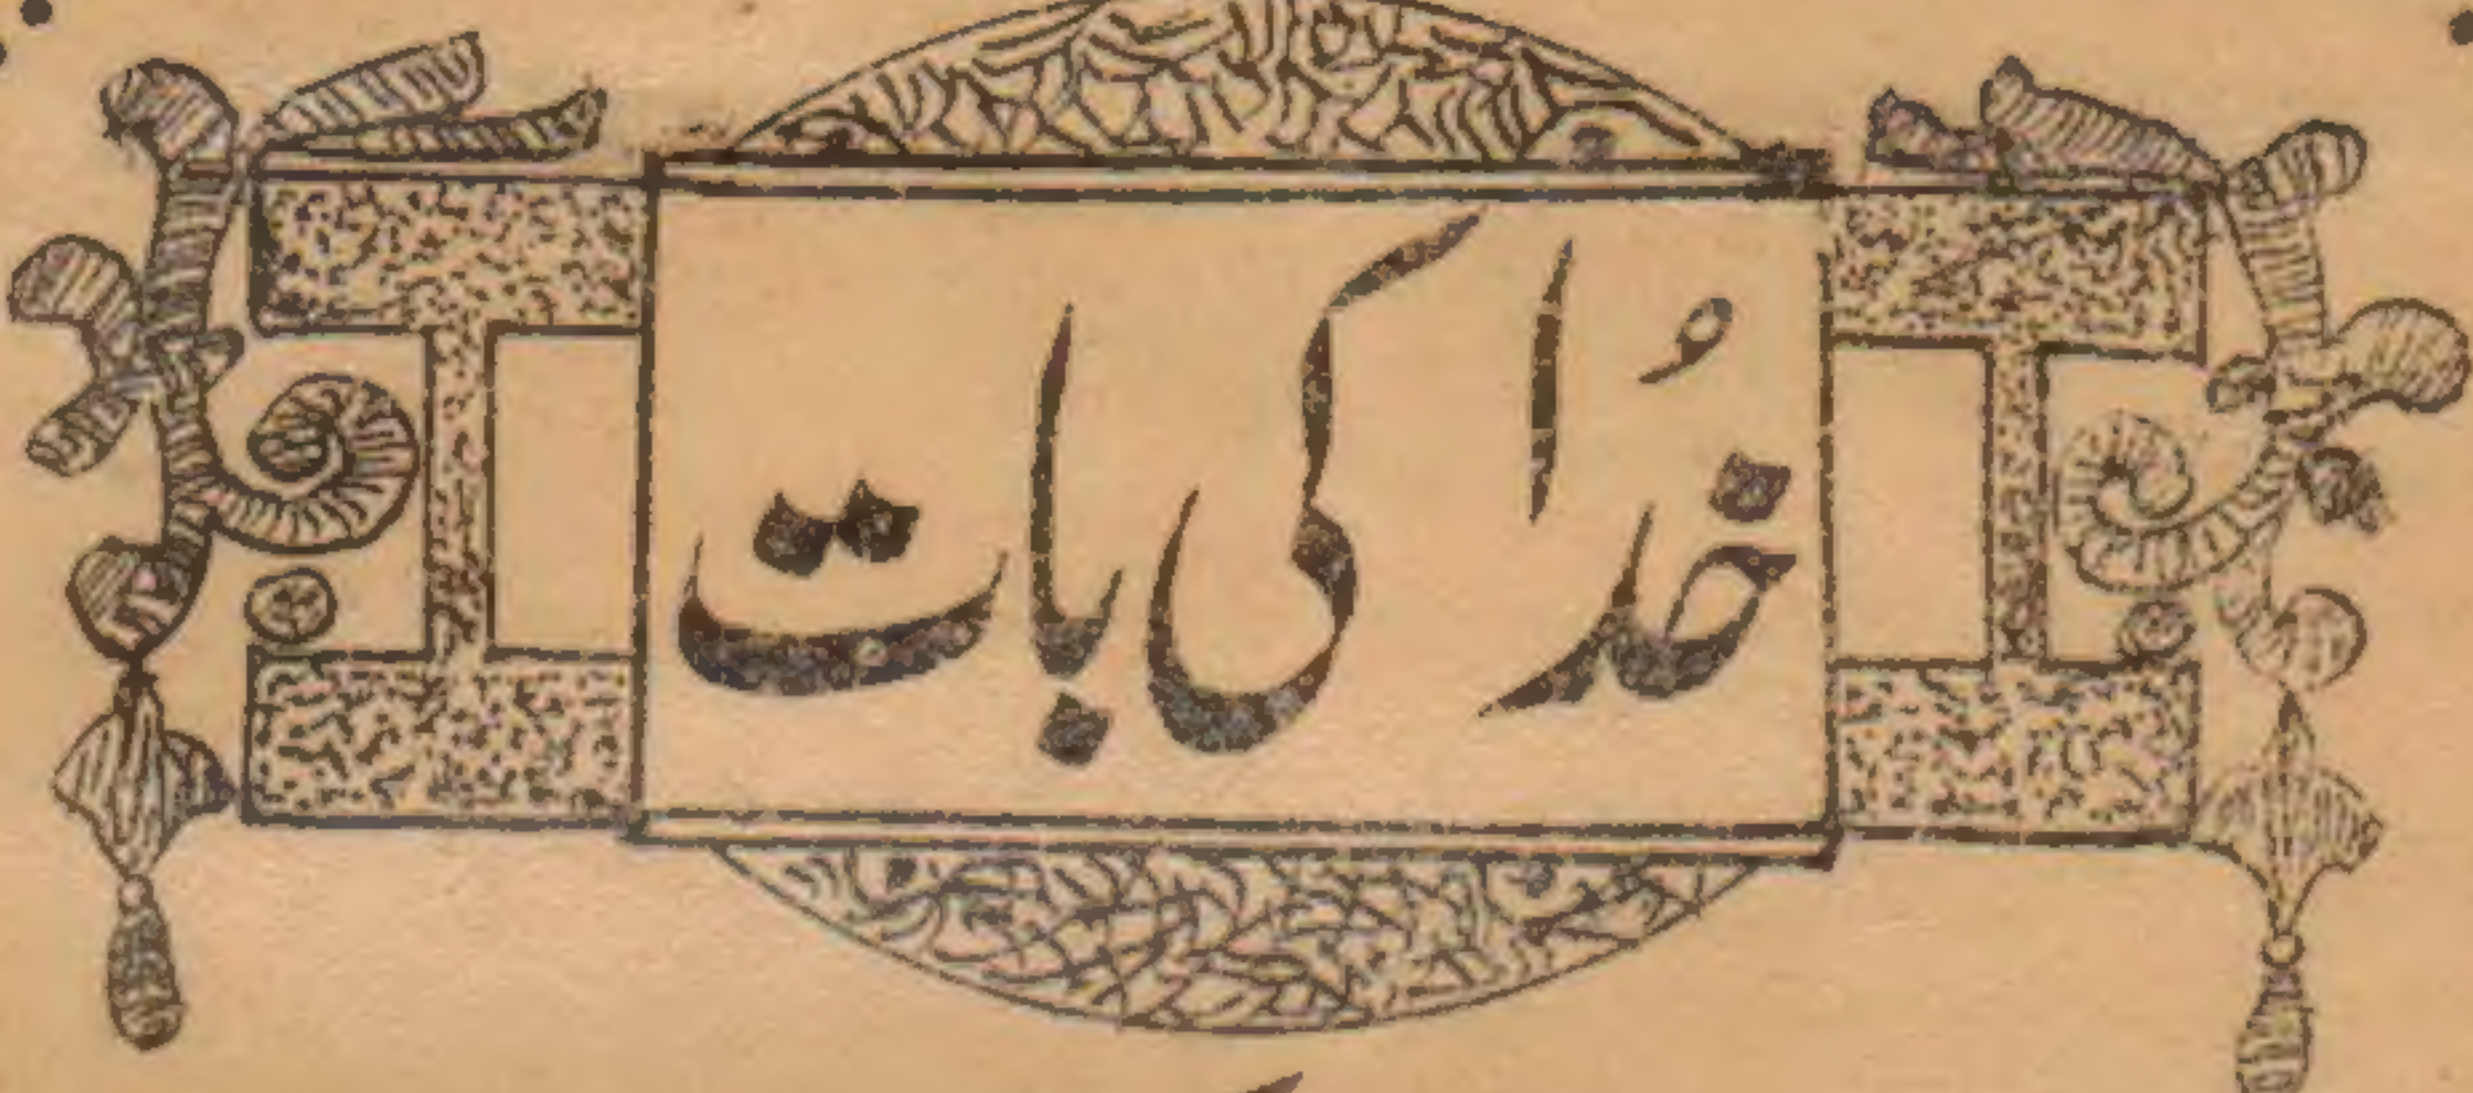 خُدا کی بات